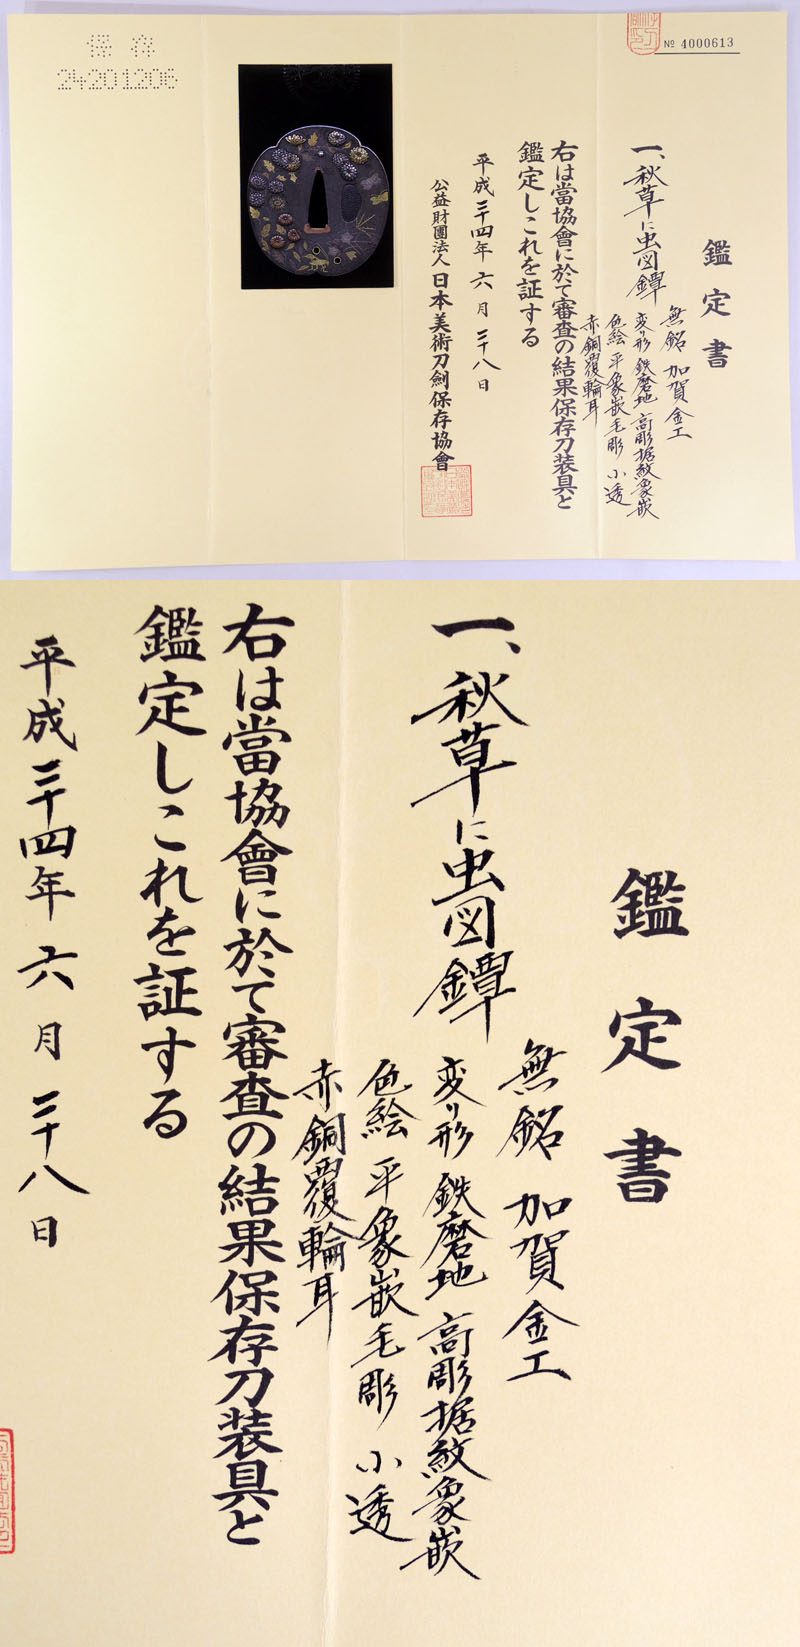 保存
24201206
№ 4000613
鑑定書
一、秋草に虫図鐔
無銘 加賀金工
変り形 鉄磨地 高彫据紋象嵌
色絵 平象嵌毛彫 小透
赤銅覆輪耳
右は當協會に於て審査の結果保存刀装具と
鑑定しこれを証する
平成二十四年 六月 二十八日
公益財團法人 日本美術刀剣保存協會
鑑定書
一、秋草に虫図鐔
無銘 加賀金工
変り形 鉄磨地 高彫据紋象嵌
色絵 平象嵌毛彫 小透
赤銅覆輪耳
右は當協會に於て審査の結果保存刀装具と
鑑定しこれを証する
平成二十四年 六月 二十八日